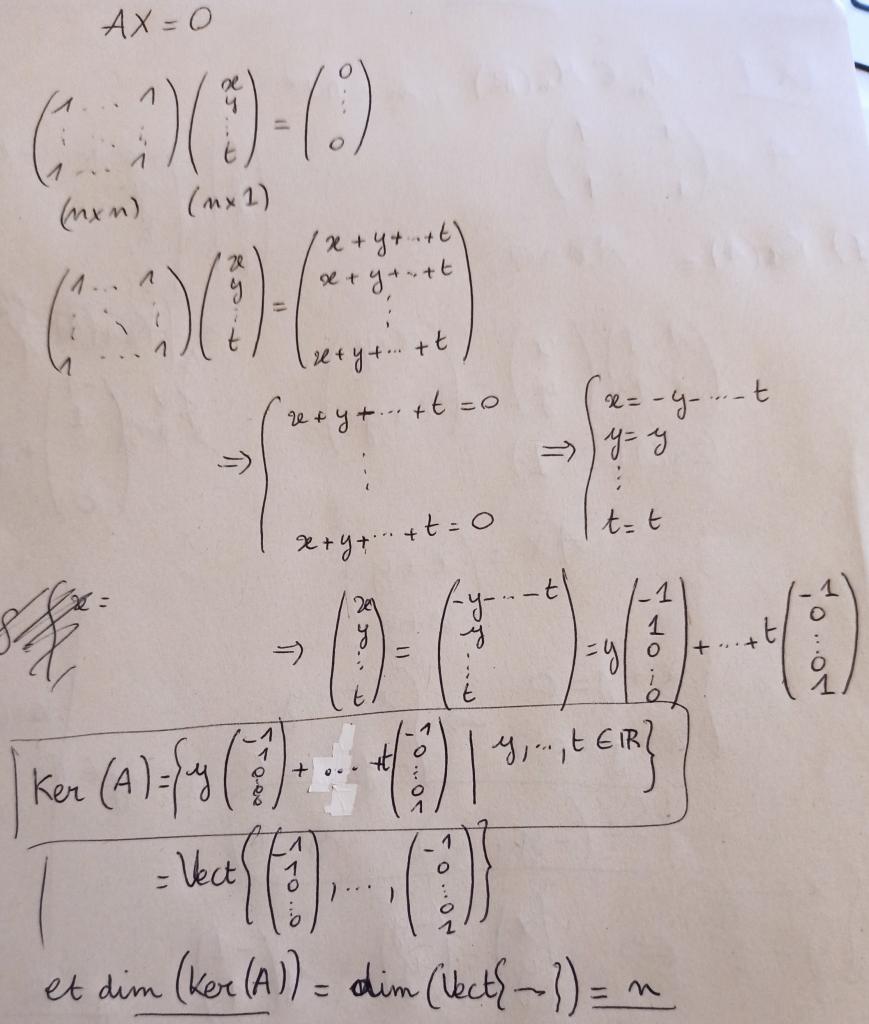 AX = 0
(1 ... 1 ⋮ ⋮ 1 ... 1) (x y ⋮ t) = (0 ⋮ 0)
(n×n) (n×1)
(1 ... 1 ⋮ ⋱ ⋮ 1 ... 1) (x y ⋮ t) = (x+y+...+t x+y+...+t ⋮ x+y+...+t)
⇒ { x+y+...+t = 0 ⋮ x+y+...+t = 0 ⇒ { x = -y-...-t y = y ⋮ t = t
x =
⇒ (x y ⋮ t) = (-y-...-t y ⋮ t) = y (-1 1 0 ⋮ 0) + ... + t (-1 0 ⋮ 0 1)
Ker (A) = { y (-1 1 0 0 0) + ... + t (-1 0 ... 0 1) | y, ..., t ∈ IR }
= Vect { (-1 1 0 ... 0), ..., (-1 0 ... 0 1) }
et dim (Ker(A)) = dim (Vect{~}) = n